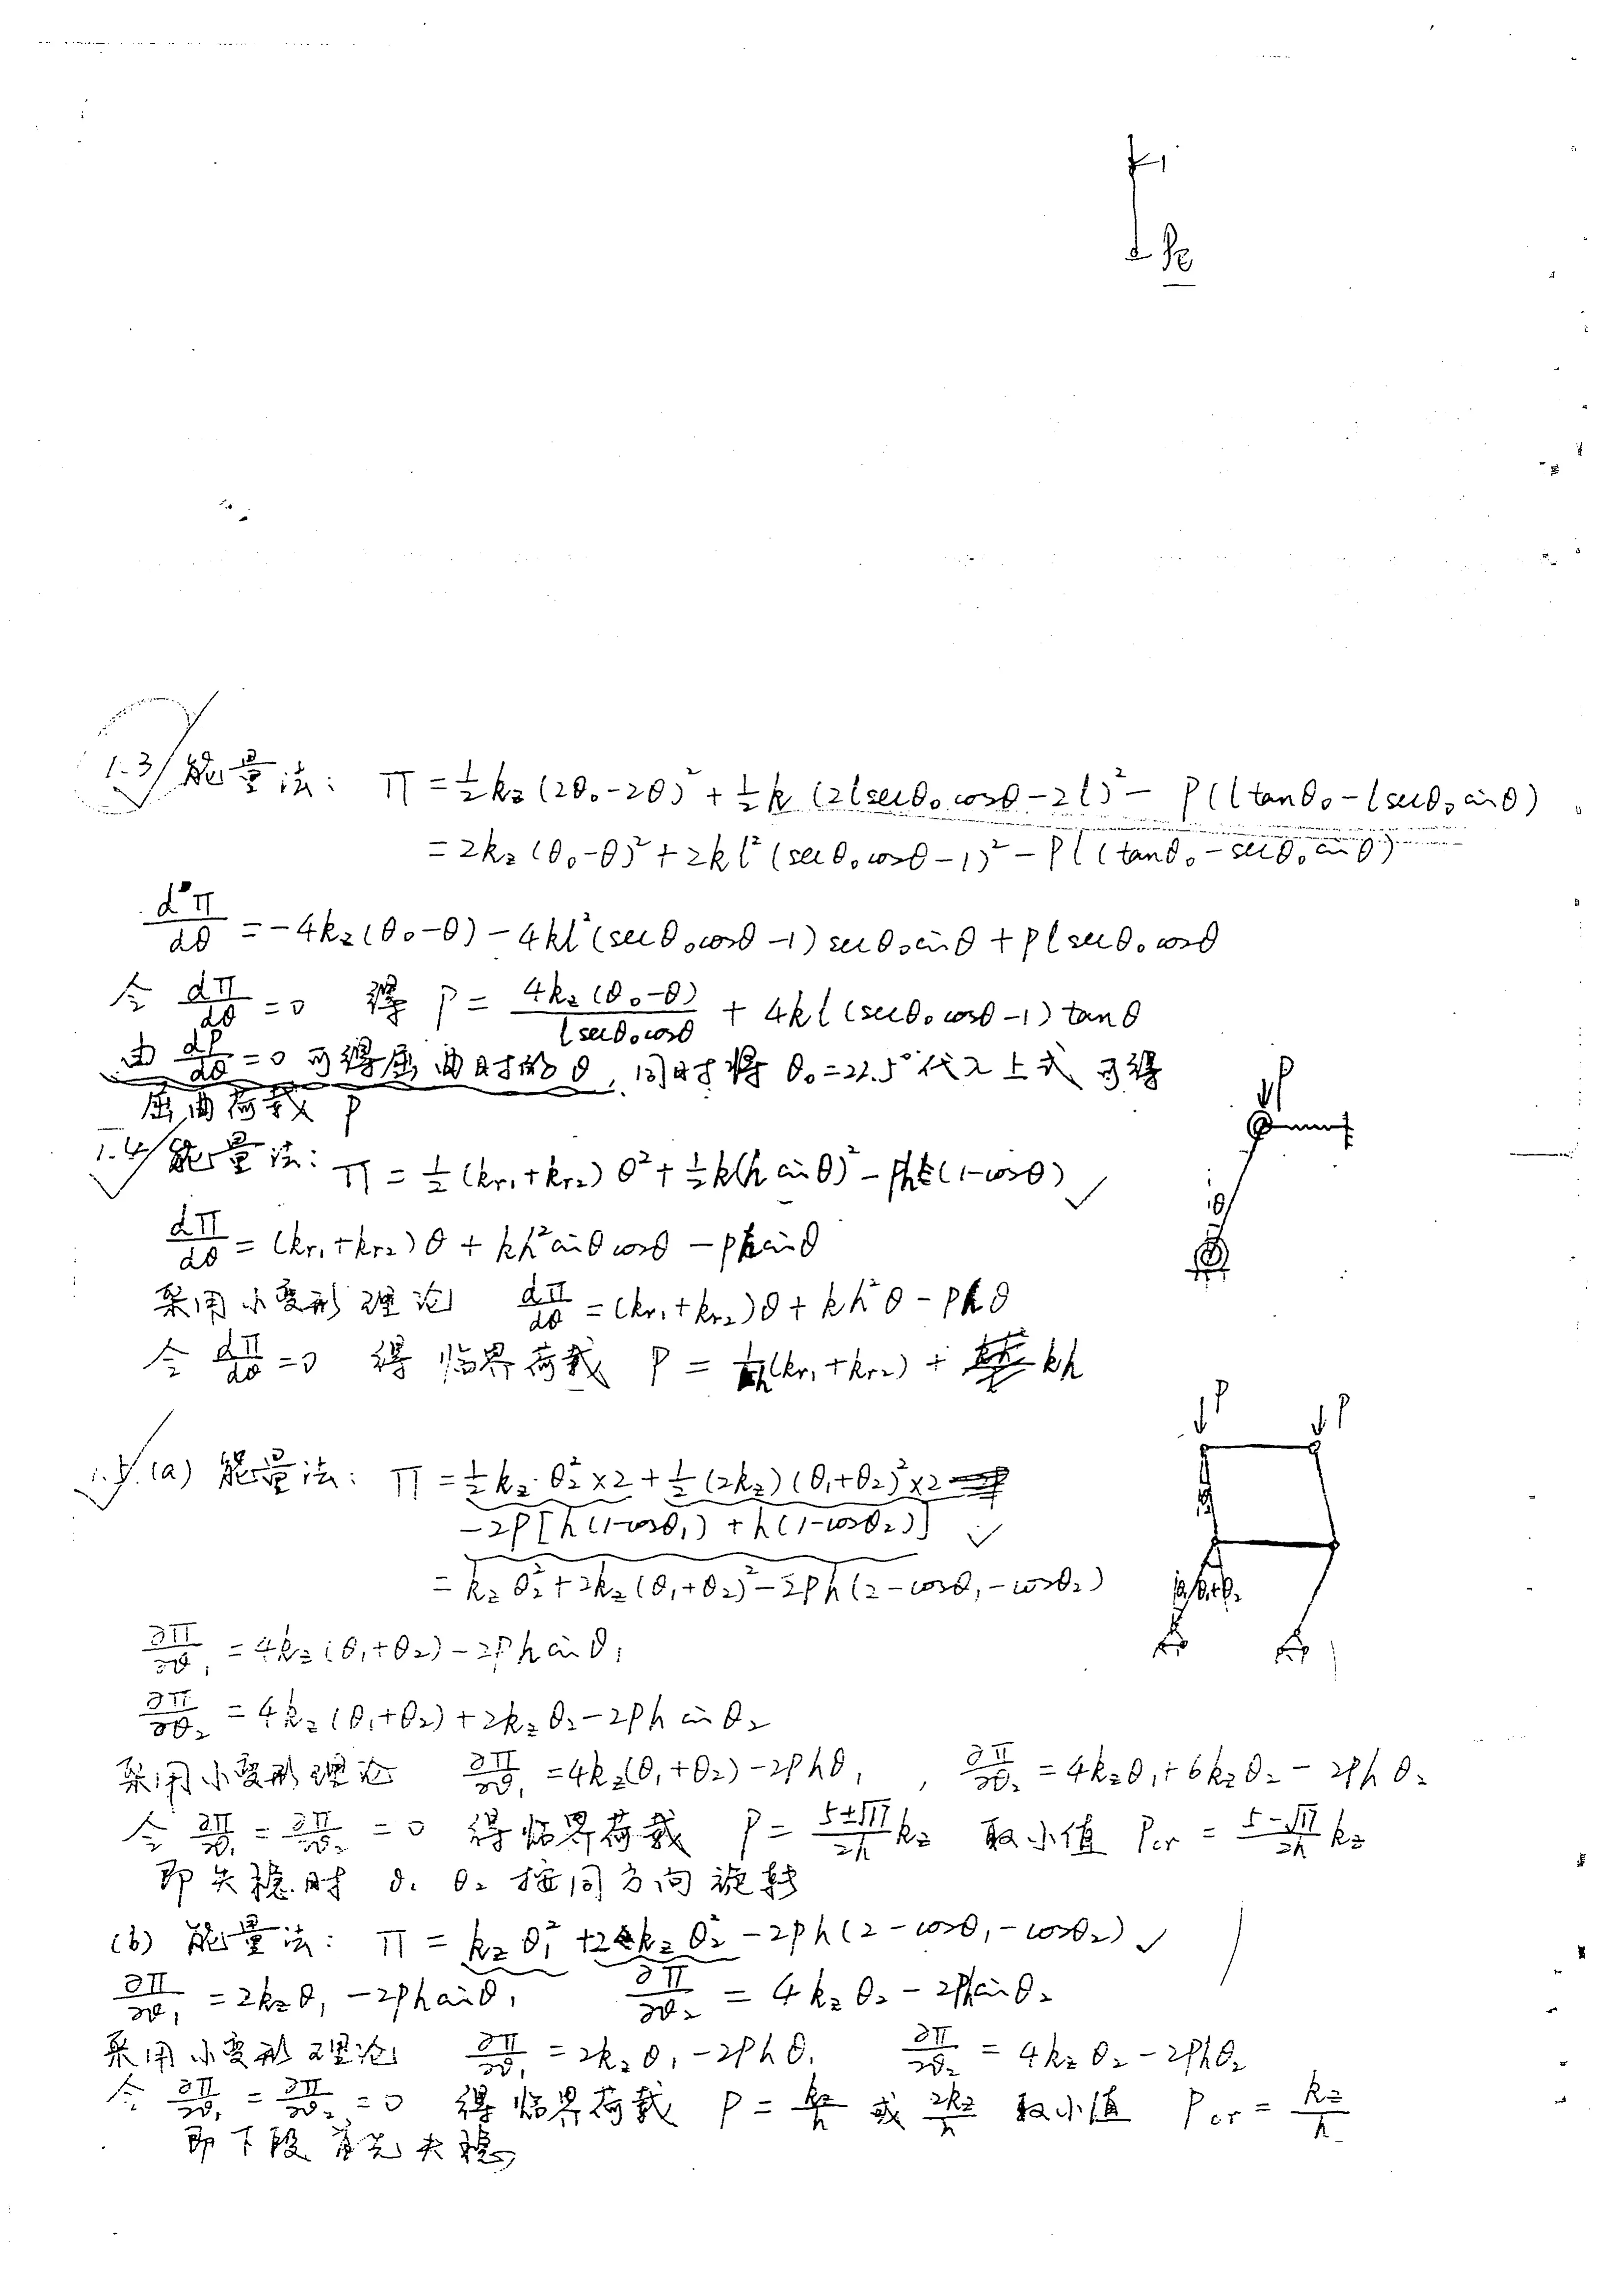 k₁
k₂
1.3 能量法: Π = ½k₂(2θ₀-2θ)² + ½k(2lsecθ₀cosθ-2l)² - P(ltanθ₀-lsecθ₀sinθ)
= 2k₂(θ₀-θ)² + 2kl²(secθ₀cosθ-1)² - Pl(tanθ₀-secθ₀sinθ)
dΠ/dθ = -4k₂(θ₀-θ) - 4kl²(secθ₀cosθ-1)secθ₀sinθ + Plsecθ₀cosθ
令 dΠ/dθ = 0 得 P = 4k₂(θ₀-θ)/(lsecθ₀cosθ) + 4kl(secθ₀cosθ-1)tanθ
由 dP/dθ = 0 可得屈曲时的θ, 同时将 θ₀=22.5° 代入上式 可得
屈曲荷载 P
P
1.4 能量法: Π = ½(kr₁+kr₂)θ² + ½k(h sinθ)² - Ph(1-cosθ) ✓
θ
dΠ/dθ = (kr₁+kr₂)θ + kh²sinθcosθ - Phsinθ
采用小变形理论 dΠ/dθ = (kr₁+kr₂)θ + kh²θ - Phθ
令 dΠ/dθ = 0 得 临界荷载 P = 1/h(kr₁+kr₂) + kh
P P
1.5.(a) 能量法: Π = ½k₂·θ₂²×2 + ½(2k₂)(θ₁+θ₂)²×2
-2P[h(1-cosθ₁)+h(1-cosθ₂)] ✓
= k₂θ₂² + 2k₂(θ₁+θ₂)² - 2Ph(2-cosθ₁-cosθ₂)
∂Π/∂θ₁ = 4k₂(θ₁+θ₂) - 2Phsinθ₁
∂Π/∂θ₂ = 4k₂(θ₁+θ₂) + 2k₂θ₂ - 2Phsinθ₂
采用小变形理论 ∂Π/∂θ₁ = 4k₂(θ₁+θ₂) - 2Phθ₁, ∂Π/∂θ₂ = 4k₂θ₁ + 6k₂θ₂ - 2Phθ₂
令 ∂Π/∂θ₁ = ∂Π/∂θ₂ = 0 得临界荷载 P = (5±√17)/2h k₂ 取小值 Pcr = (5-√17)/2h k₂
即失稳时 θ₁ θ₂ 按同方向旋转
(b) 能量法: Π = k₂θ₁² + 2k₂θ₂² - 2Ph(2-cosθ₁-cosθ₂) ✓
∂Π/∂θ₁ = 2k₂θ₁ - 2Phsinθ₁ ∂Π/∂θ₂ = 4k₂θ₂ - 2Phsinθ₂
采用小变形理论 ∂Π/∂θ₁ = 2k₂θ₁ - 2Phθ₁ ∂Π/∂θ₂ = 4k₂θ₂ - 2Phθ₂
令 ∂Π/∂θ₁ = ∂Π/∂θ₂ = 0 得临界荷载 P = k₂/h 或 2k₂/h 取小值 Pcr = k₂/h
即下段首先失稳